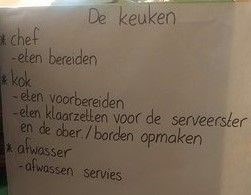 De keuken
* chef
- eten bereiden
* kok
- eten voorbereiden
- eten klaarzetten voor de serveerster
en de ober./borden opmaken
* afwasser
- afwassen servies